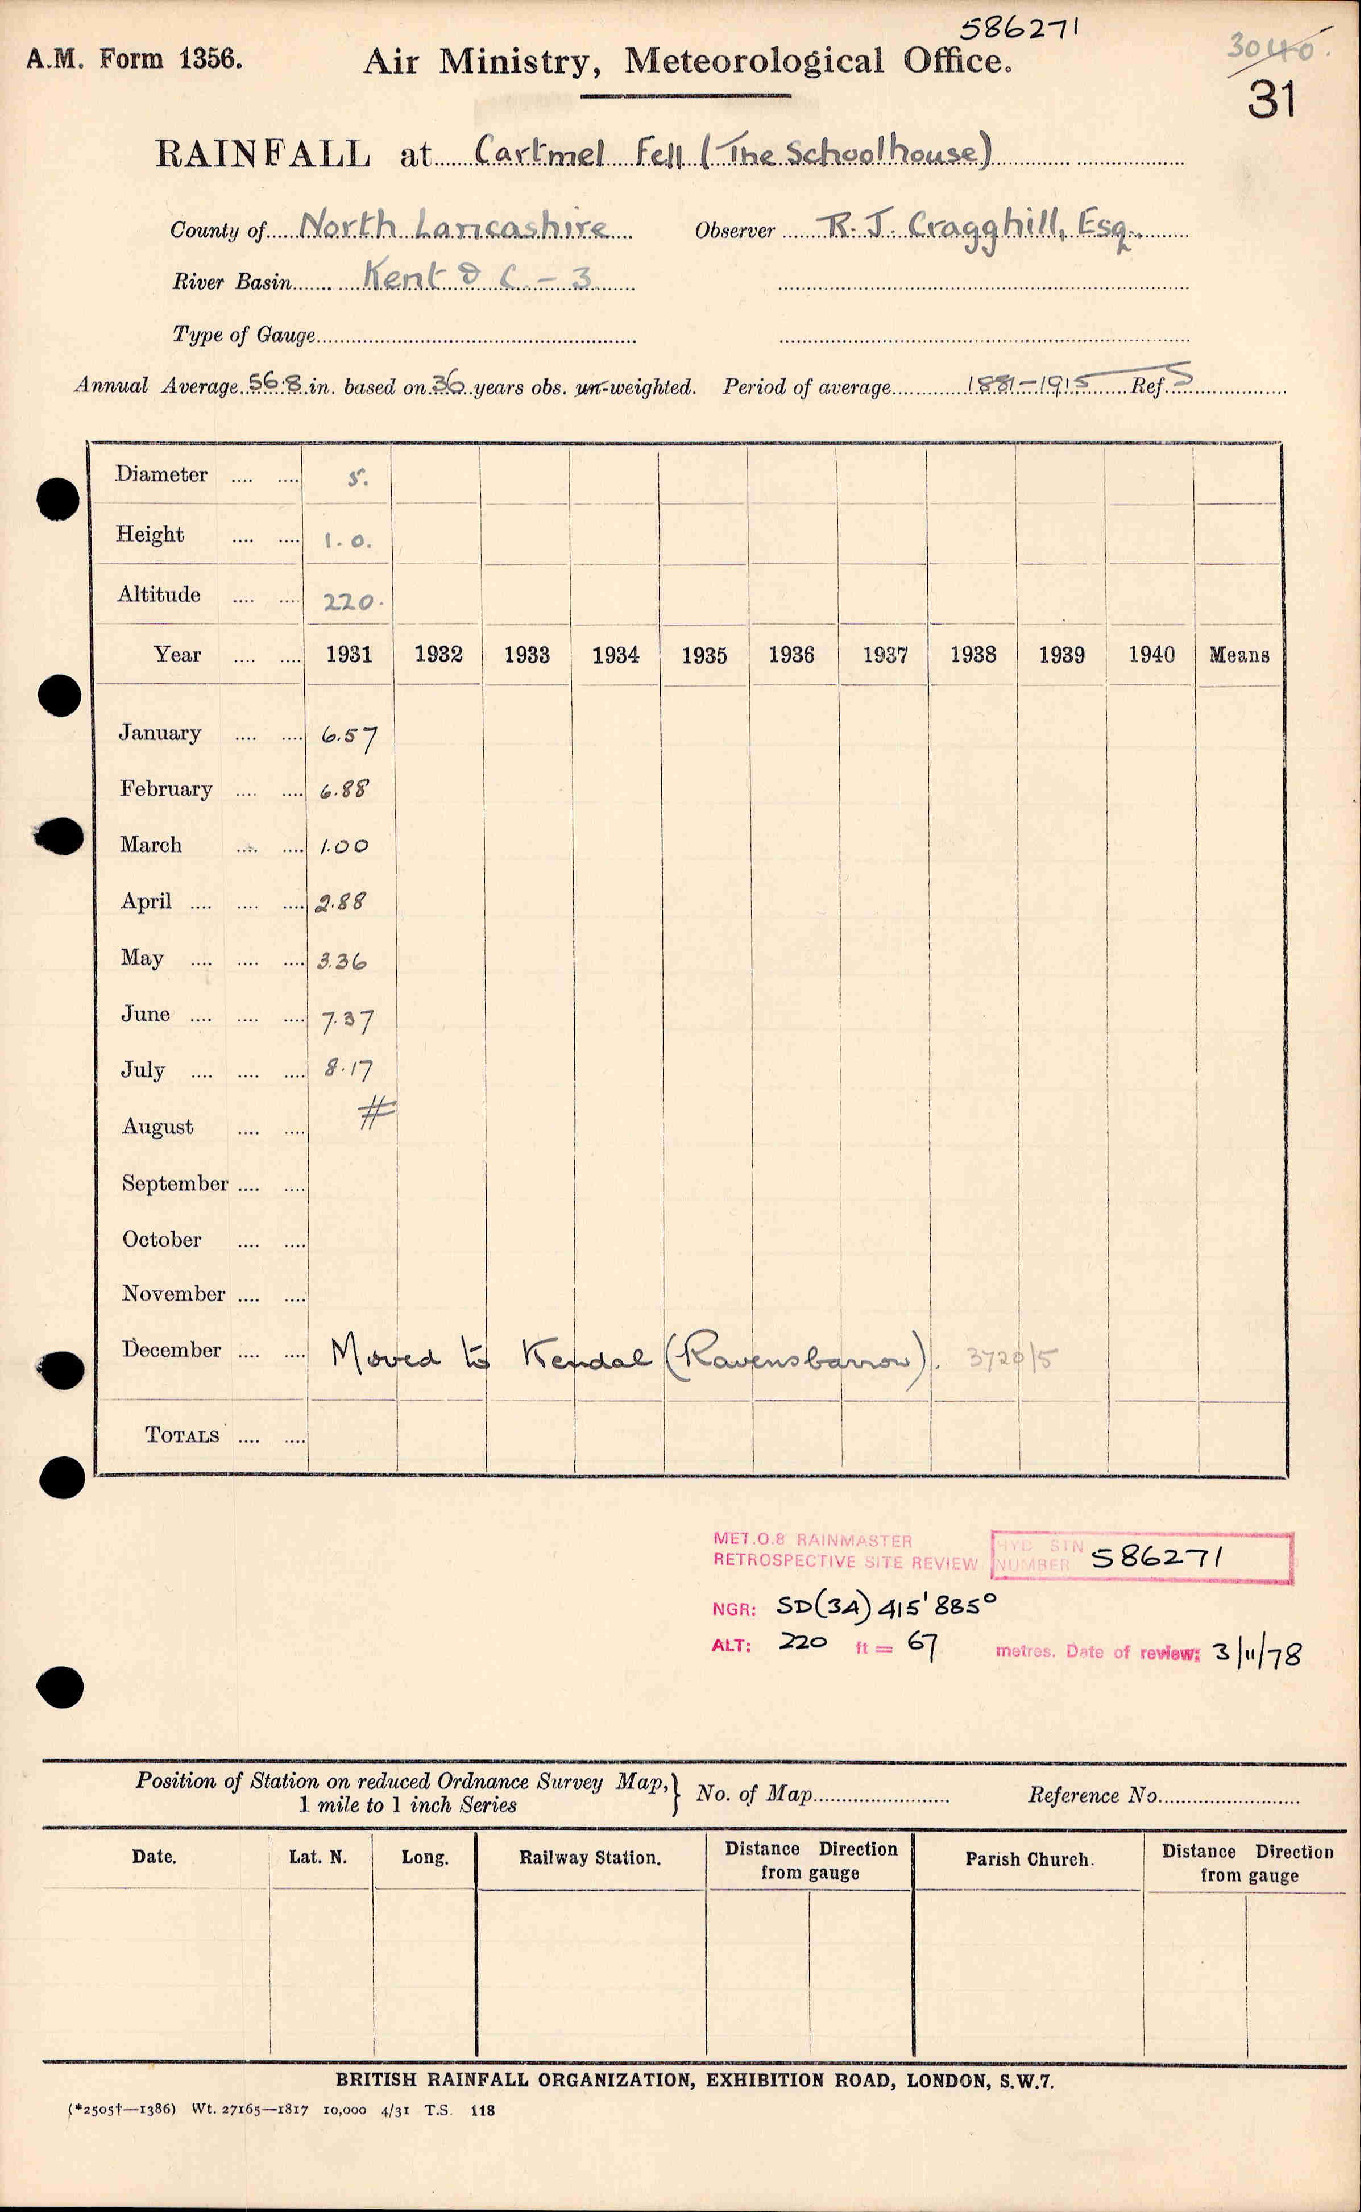 586271
A.M. Form 1356.
Air Ministry, Meteorological Office.
3040.
31
RAINFALL at Cartmel Fell (The Schoolhouse)
County of North Lancashire Observer R. J. Cragghill, Esq.
River Basin Kent & C. - 3
Type of Gauge
Annual Average 56.8 in. based on 36 years obs. un-weighted. Period of average 1881-1915 Ref. S
Diameter 5.
Height 1. 0.
Altitude 220.
Year 1931 1932 1933 1934 1935 1936 1937 1938 1939 1940 Means
January 6.57
February 6.88
March 1.00
April 2.88
May 3.36
June 7.37
July 8.17
August #
September
October
November
December Moved to Kendal (Ravensbarrow). 3720/5
TOTALS
MET.O.8 RAINMASTER
RETROSPECTIVE SITE REVIEW
HYD STN
NUMBER 586271
NGR: SD(34) 415' 885°
ALT: 220 ft = 67 metres. Date of review: 3/11/78
Position of Station on reduced Ordnance Survey Map,
1 mile to 1 inch Series } No. of Map Reference No.
Date. Lat. N. Long. Railway Station. Distance Direction from gauge Parish Church. Distance Direction from gauge
BRITISH RAINFALL ORGANIZATION, EXHIBITION ROAD, LONDON, S.W.7.
(*2505†—1386) Wt. 27165—1817 10,000 4/31 T.S. 118